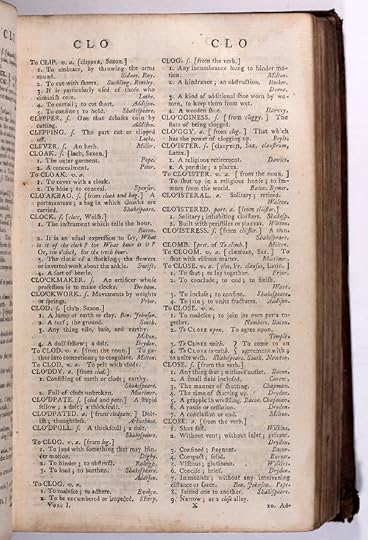 CLO
To CLIP. v. a. [clippan, Saxon.]
1. To embrace, by throwing the arms
round. Sidney. Ray.
2. To cut with sheers. Suckling. Bentley.
3. It is particularly used of those who
diminish coin. Locke.
4. To curtail; to cut short. Addison.
5. To confine; to hold. Shakespeare.
CLIPPER. s. One that debases coin by
cutting. Addison.
CLIPPING. s. The part cut or clipped
off. Locke.
CLIVER. s. An herb. Miller.
CLOAK. s. [lach, Saxon.]
1. The outer garment. Pope.
2. A concealment. Peter.
To CLOAK. v. a.
1. To cover with a cloak.
2. To hide; to conceal. Spenser.
CLO'AKBAG. s. [from cloak and bag.] A
portmanteau; a bag in which cloaths are
carried. Shakespeare.
CLOCK. s. [clocc, Welch.]
1. The instrument which tells the hour.
Bacon.
2. It is an usual expression to say, What
is it of the clock? for What hour is it?
Or, ten o'clock, for the tenth hour.
3. The clock of a stocking; the flowers
or inverted work about the ankle. Swift.
4. A sort of beetle.
CLO'CKMAKER. s. An artificer whose
profession is to make clocks. Derham.
CLO'CKWORK. s. Movements by weights
or springs. Prior.
CLOD. s. [clud, Saxon.]
1. A lump of earth or clay. Ben. Johnson.
2. A turf; the ground. South.
3. Any thing vile, base, and earthy.
Milton.
4. A dull fellow; a dolt. Dryden.
To CLOD. v. n. [from the noun.] To ga-
ther into concretions; to coagulate. Milton.
To CLOD. v. a. To pelt with clods.
CLO'DDY. a. [from clod.]
1. Consisting of earth or clods; earthy.
Shakespeare.
2. Full of clods unbroken. Mortimer.
CLO'DPATE. s. [clod and pate.] A stupid
fellow; a dolt; a thickscull.
CLO'DPATED. a. [from clodpate.] Dolt-
ish; thoughtless. Arbuthnot.
CLO'DPOLL. s. A thickscull; a dolt.
Shakespeare.
To CLOG. v. a. [from log.]
1. To load with something that may hin-
der motion. Digby.
2. To hinder; to obstruct. Raleigh.
3. To load; to burthen. Shakespeare.
Addison.
To CLOG. v. n.
1. To coalesce; to adhere. Evelyn.
2. To be encumbered or impeded. Sharp.
VOL. I.
CLO
CLOG. s. [from the verb.]
1. Any incumbrance hung to hinder mo-
tion. Milton.
2. A hindrance; an obstruction. Hooker.
Donne.
3. A kind of additional shoe worn by wo-
men, to keep them from wet.
4. A wooden shoe. Harvey.
CLO'GGINESS. s. [from cloggy.] The
state of being clogged.
CLO'GGY. a. [from clog.] That which
has the power of clogging up. Boyle.
CLO'ISTER. s. [Saxon, claustrum,
Latin.]
1. A religious retirement. Davies.
2. A peristile; a piazza.
To CLO'ISTER. v. a. [from the noun.]
To shut up in a religious house; to im-
mure from the world. Bacon. Rymer.
CLO'ISTERAL. a. Solitary; retired.
Walton.
CLO'ISTERED. part. a. [from cloister.]
1. Solitary; inhabiting cloisters. Shakesp.
2. Built with peristiles or piazzas. Wotton.
CLO'ISTRESS. s. [from cloister.] A nun.
Shakespeare.
CLOMB. [pret. of To climb.] Milton.
To CLOOM. v. a. [Saxon.] To
shut with viscous matter. Mortimer.
To CLOSE. v. a. [clos, Fr. clausus, Latin.]
1. To shut; to lay together. Prior.
2. To conclude; to end; to finish.
Wake.
3. To inclose; to confine. Shakespeare.
4. To join; to unite fractures. Addison.
To CLOSE. v. n.
1. To coalesce; to join its own parts to-
gether. Numbers. Bacon.
2. To CLOSE upon. To agree upon.
Temple.
3. To CLOSE with. } To come to an
4. To CLOSE in with. } agreement with; to
unite with. Shakesp. South. Newton.
CLOSE. s. [from the verb.]
1. Any thing shut; without outlet. Bacon.
2. A small field inclosed. Carew.
3. The manner of shutting. Chapman.
4. The time of shutting up. Dryden.
5. A grapple in wrestling. Bacon. Chapman.
6. A pause or cessation. Dryden.
7. A conclusion or end. Milton.
CLOSE. a. [from the verb.]
1. Shut fast. Wilkins.
2. Without vent; without inlet; private.
Dryden.
3. Confined; stagnant. Bacon.
4. Compact; solid. Burnet.
5. Viscous; glutinous. Wilkins.
6. Concise; brief. Dryden.
7. Immediate; without any intervening
distance or space. Ben. Johnson. Pope.
8. Joined one to another. Shakesp.
9. Narrow; as a close alley.
X 10. Ad-